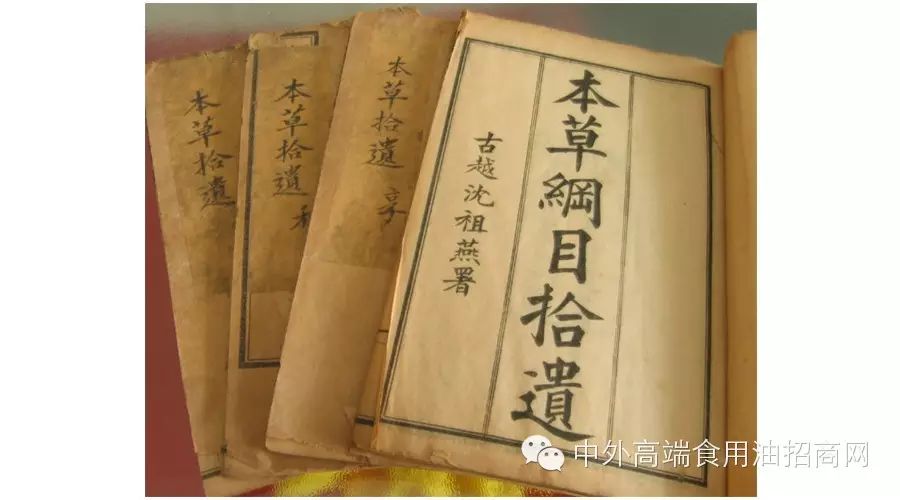 本草綱目拾遺
古越沈祖燕署
本草拾遺 亨
本草拾遺 利
本草拾遺
中外高端食用油招商网